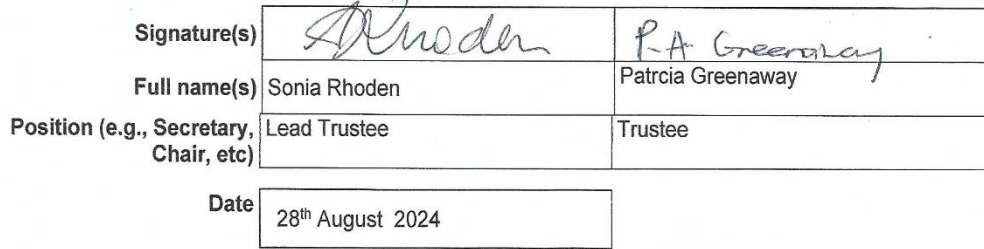 Signature(s) SRhoden P-A Greenaway
Full name(s) Sonia Rhoden Patrcia Greenaway
Position (e.g., Secretary, Lead Trustee Trustee
Chair, etc)
Date 28th August 2024